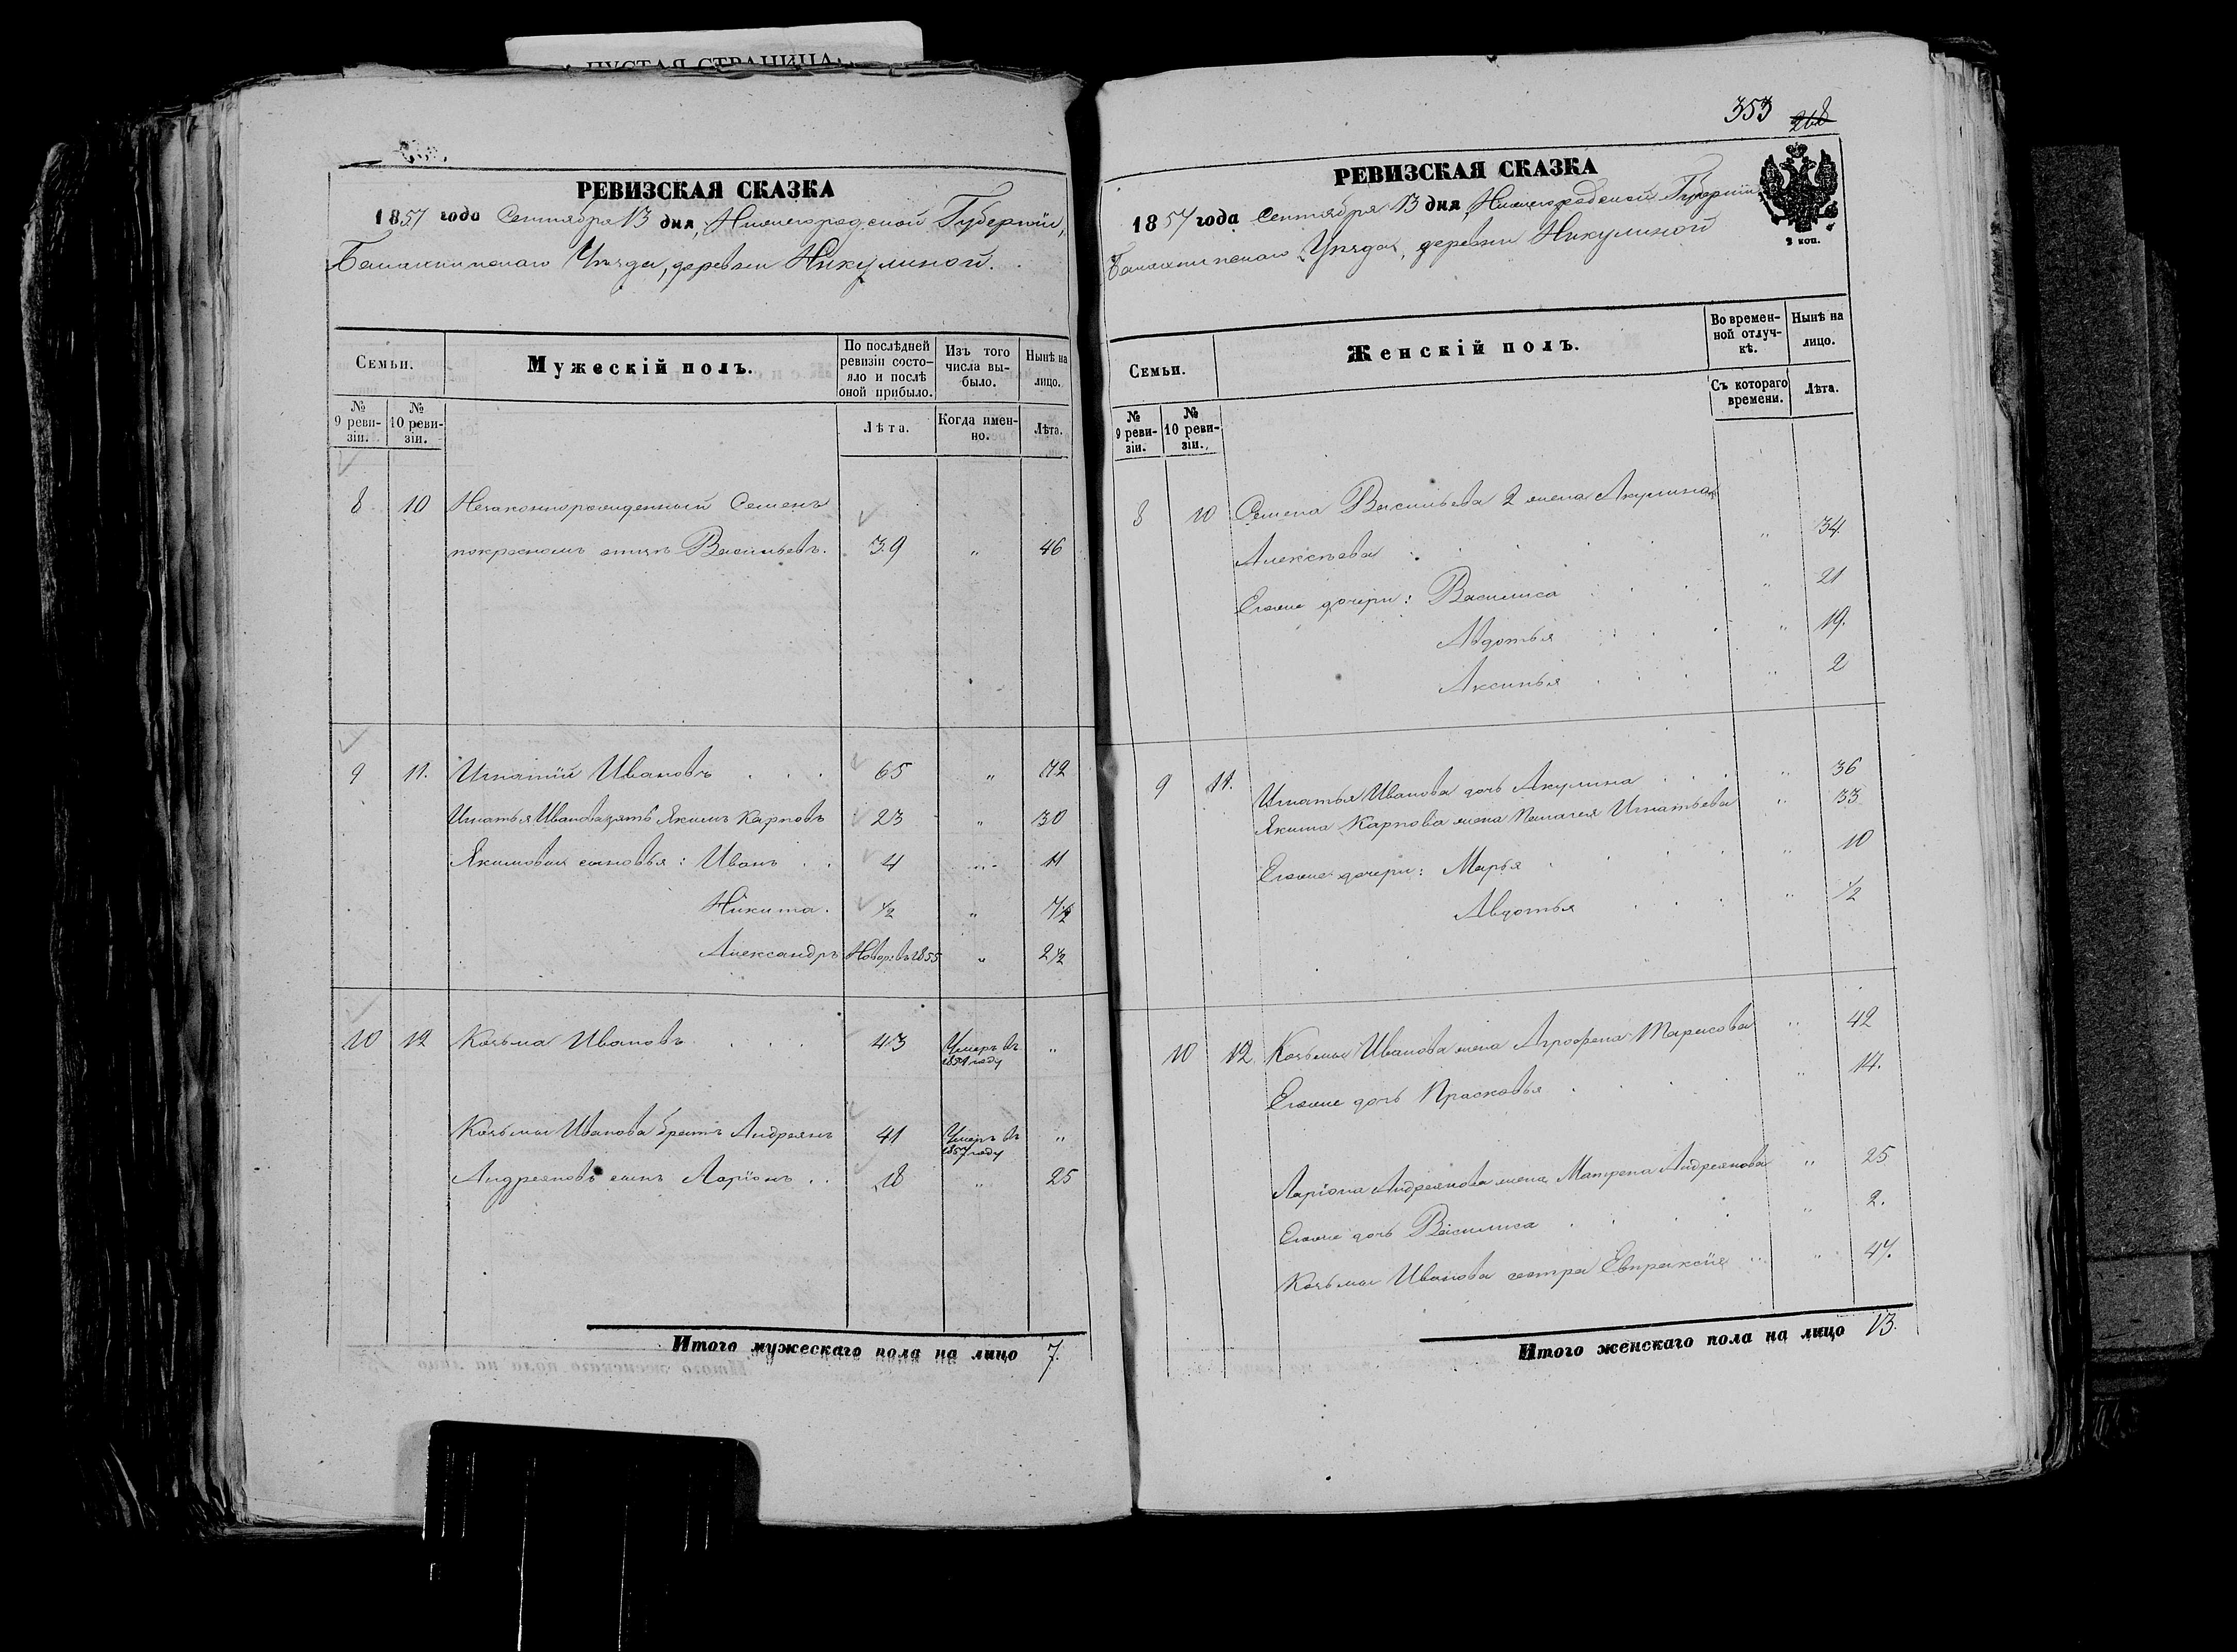 ПУСТАЯ СТРАНИЦА
РЕВИЗСКАЯ СКАЗКА
1857 года Сентября 13 дня, Нижегородской Губерніи,
Балахнинскаго Уѣзда, деревни Никулиной.
Семьи.
Мужескій полъ.
По послѣдней ревизіи состояло и послѣ оной прибыло.
Изъ того числа выбыло.
Нынѣ на лицо.
№ 9 ревизіи.
№ 10 ревизіи.
Лѣта.
Когда именно.
Лѣта.
8 10 Незаконнорожденный Семенъ
по крестномъ отцѣ Васильевъ. 39 " 46
9 11. Игнатій Ивановъ . . . 65 " 72
Игнатья Иванова зять Якимъ Карповъ 23 " 30
Якимовы сыновья: Иванъ . . 4 " 11
Никита. ½ " 7½
Александръ Новор: въ 1855 " 2½
10 12 Козьма Ивановъ . . . 43 Умеръ въ "
году
Козьмы Иванова братъ Андреянъ 41 Умеръ въ "
1857 году
Андреяновъ сынъ Ларіонъ . . 18 " 25
Итого мужескаго пола на лицо 7.
353 268
РЕВИЗСКАЯ СКАЗКА
2 коп.
1857 года Сентября 13 дня Нижегородской Губерніи
Балахнинскаго Уѣзда, деревни Никулиной
Семьи.
Женскій полъ.
Во временной отлучкѣ.
Нынѣ на лицо.
№ 9 ревизіи.
№ 10 ревизіи.
Съ котораго времени.
Лѣта.
8 10 Семена Васильева 2 жена Акулина
Алексѣева " 34.
Егоже дочери: Василиса " 21
Авдотья " 19.
Аксинья " 2
9 11. Игнатья Иванова дочь Акулина . . . " 36
Якима Карпова жена Пелагея Игнатьева " 33
Егоже дочери: Марья " 10
Авдотья " ½
10 12 Козьмы Иванова жена Агрофена Тарасова " 42
Егоже дочь Прасковья " 14.
Ларіона Андреянова жена Матрена Андреянова " 25
Егоже дочь Василиса " 2.
Козьмы Иванова сестра Евпраксія " 47.
Итого женскаго пола на лицо 13.